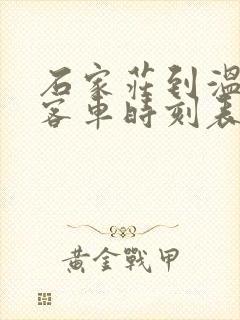 石家莊到溫
客車時刻表
黃金戰甲